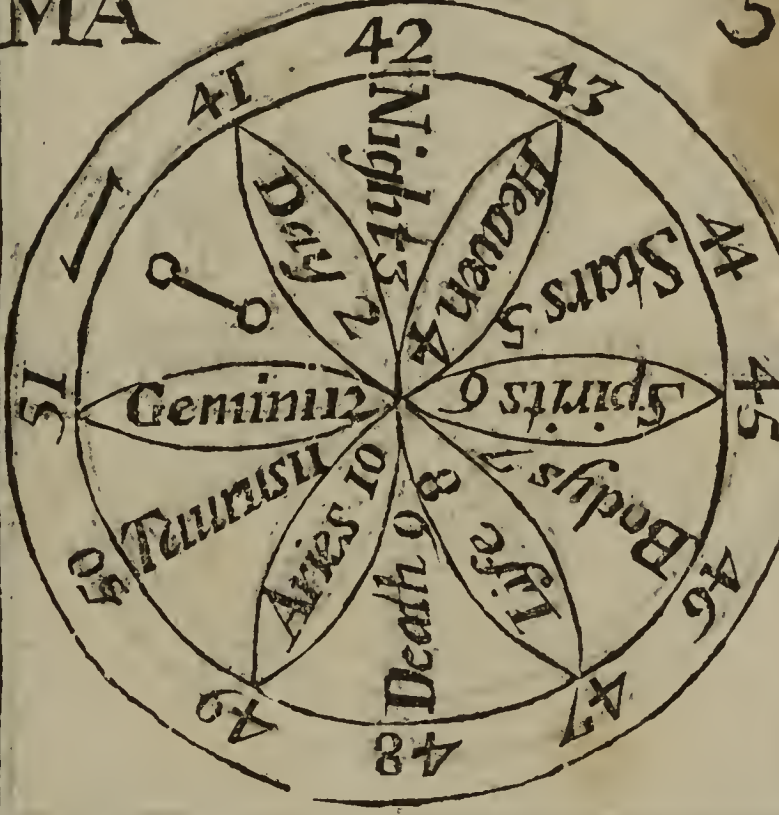 MA
41
42
43
44
45
46
47
48
49
50
51
Day 2
Night 3
Heaven 4
Stars 5
Spirits 6
Bodys 7
Life 8
Death 9
Aries 10
Taurus 11
Gemini 12